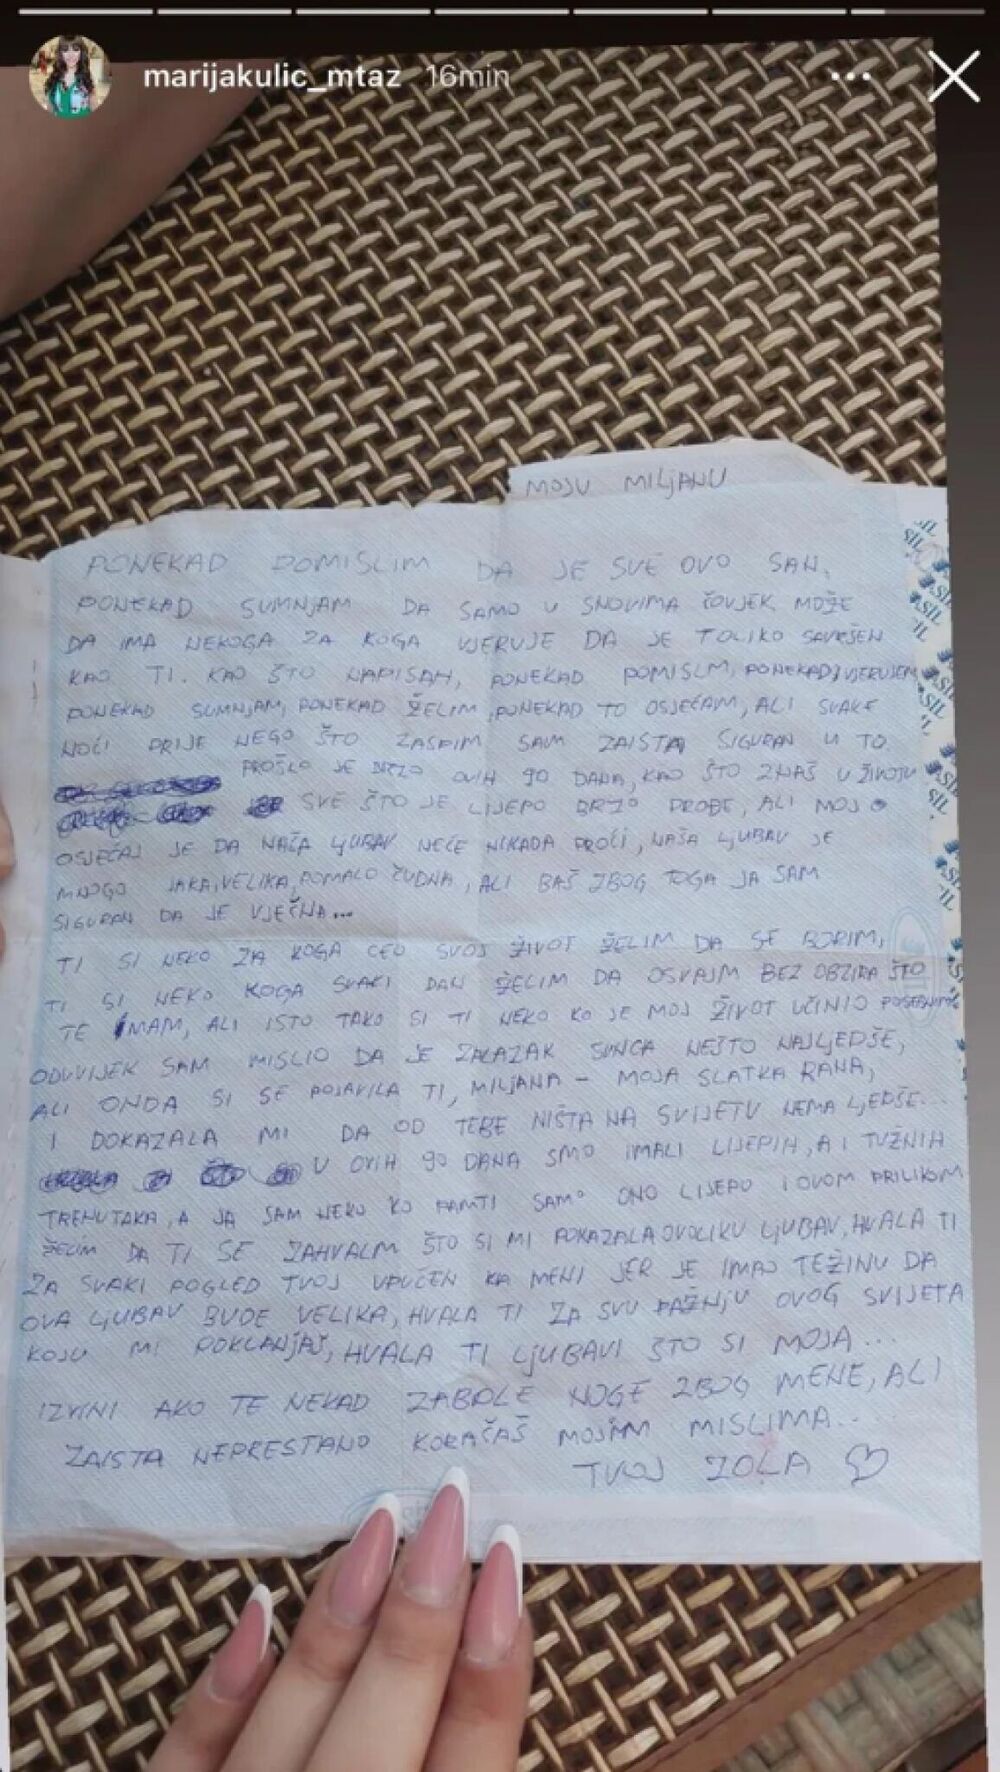 marijakulic_mtaz 16min
MOJU MILJANU
PONEKAD POMISLIM DA JE SVE OVO SAN.
PONEKAD SUMNJAM DA SAMO U SNOVIMA ČOVJEK MOŽE
DA IMA NEKOGA ZA KOGA VJERUJE DA JE TOLIKO SAVRŠEN
KAO TI. KAO ŠTO NAPISAH, PONEKAD POMISLM, PONEKAD VJERUJEM
PONEKAD SUMNJAM, PONEKAD ŽELIM, PONEKAD TO OSJEĆAM, ALI SVAKE
NOĆI PRIJE NEGO ŠTO ZASPIM SAM ZAISTA SIGURAN U TO.
PROŠLO JE BRZO OVIH 90 DANA, KAO ŠTO ZNAŠ U ŽIVOTU
SVE ŠTO JE LIJEPO BRZO PROĐE, ALI MOJ
OSJEĆAJ JE DA NAŠA LJUBAV NEĆE NIKADA PROĆI, NAŠA LJUBAV JE
MNOGO JAKA, VELIKA, POMALO ČUDNA, ALI BAŠ ZBOG TOGA JA SAM
SIGURAN DA JE VJEČNA...
TI SI NEKO ZA KOGA CEO SVOJ ŽIVOT ŽELIM DA SE BORIM,
TI SI NEKO KOGA SVAKI DAN ŽELIM DA OSVAJM BEZ OBZIRA ŠTO
TE IMAM, ALI ISTO TAKO SI TI NEKO KO JE MOJ ŽIVOT UČINIO
ODUVIJEK SAM MISLIO DA JE ZALAZAK SUNCA NEŠTO NAJLJEPŠE,
ALI ONDA SI SE POJAVILA TI, MILJANA - MOJA SLATKA RANA,
I DOKAZALA MI DA OD TEBE NIŠTA NA SVIJETU NEMA LJEPŠE...
U OVIH 90 DANA SMO IMALI LIJEPIH, A I TUŽNIH
TRENUTAKA, A JA SAM NEKO KO PAMTI SAMO ONO LIJEPO I OVOM PRILIKOM
ŽELIM DA TI SE ZAHVALM ŠTO SI MI POKAZALA OVOLIKU LJUBAV, HVALA TI
ZA SVAKI POGLED TVOJ UPUĆEN KA MENI JER JE IMAO TEŽINU DA
OVA LJUBAV BUDE VELIKA, HVALA TI ZA SVU PAŽNJU OVOG SVIJETA
KOJU MI POKLANJAŠ, HVALA TI LJUBAVI ŠTO SI MOJA...
IZVINI AKO TE NEKAD ZABOLE NOGE ZBOG MENE, ALI
ZAISTA NEPRESTANO KORAČAŠ MOJIM MISLIMA....
TVOJ ZOLA ♡